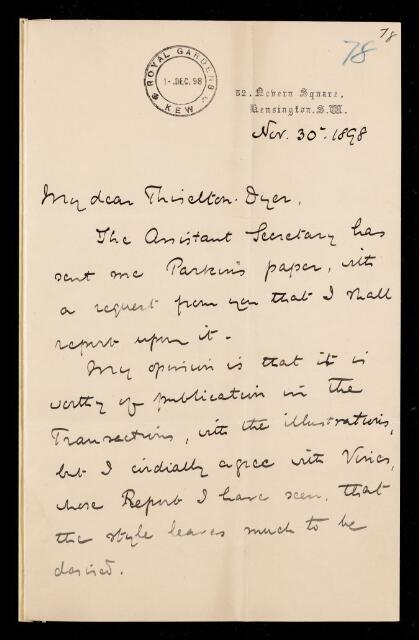 78
78
ROYAL GARDENS
1-.DEC.98
KEW
52. Nevern Square,
Kensington. S.W.
Nov. 30th. 1898
My dear Thiselton-Dyer,
The Assistant Secretary has
sent me Parkin's paper, with
a request from you that I shall
report upon it -
My opinion is that it is
worthy of publication in the
Transactions, with the illustrations,
but I cordially agree with Vines,
whose Report I have seen, that
the style leaves much to be
desired.